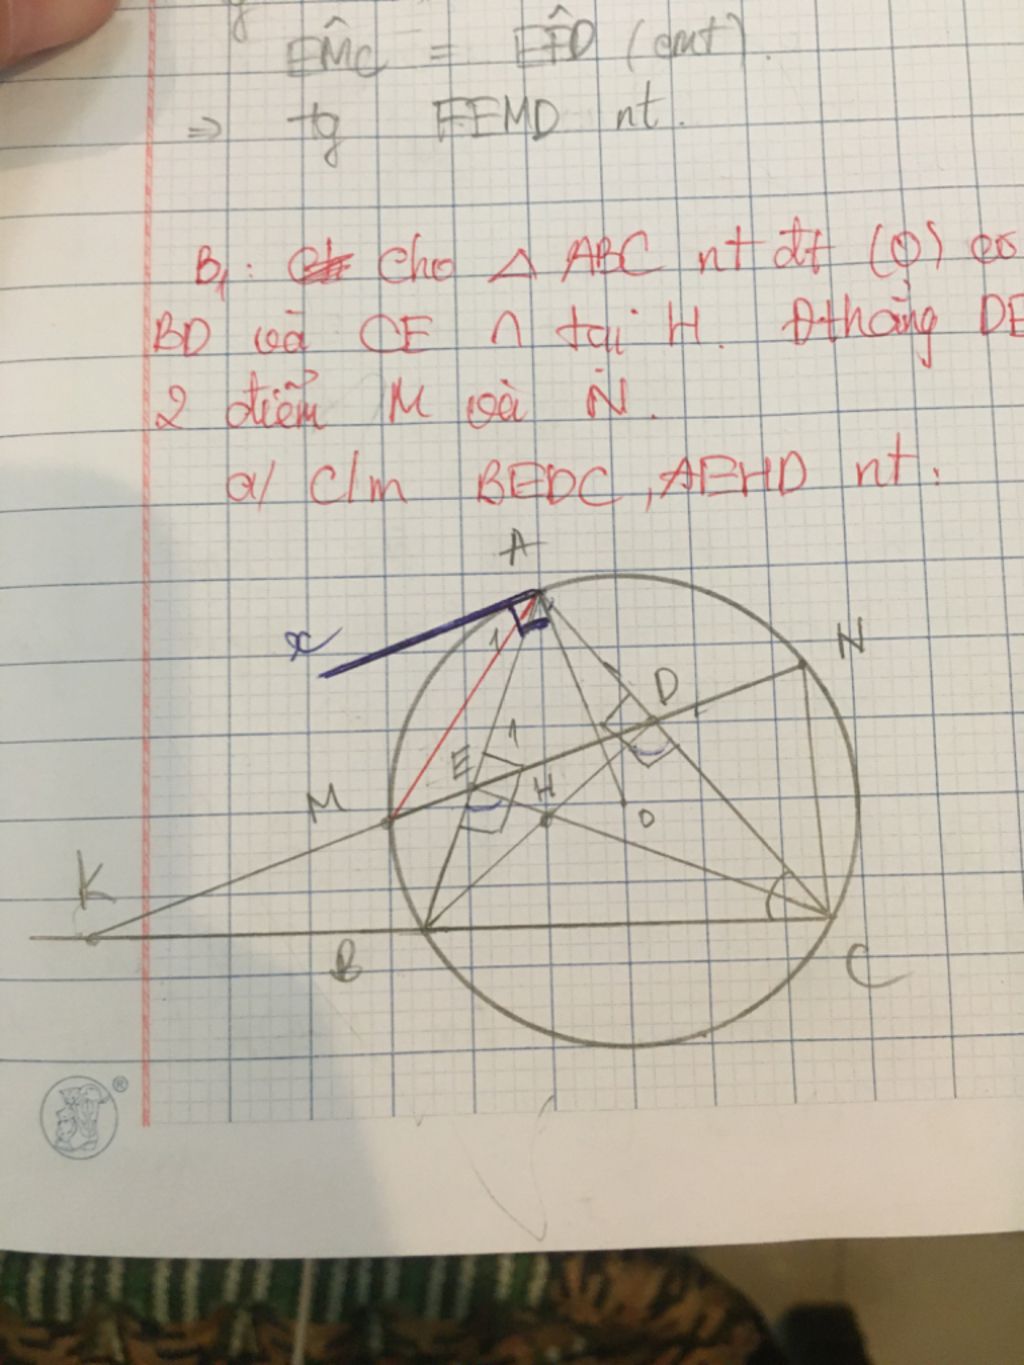 EMC = EFD (cmt).
⇒ tg FEMD nt.
B₁: Cho △ ABC nt đt (O) có
BD và CE ∩ tại H. Đthẳng DE
2 điểm M và N.
a/ C/m BEDC, AEHD nt.
A
x
1
N
D
E
1
M
H
O
K
B
C
®